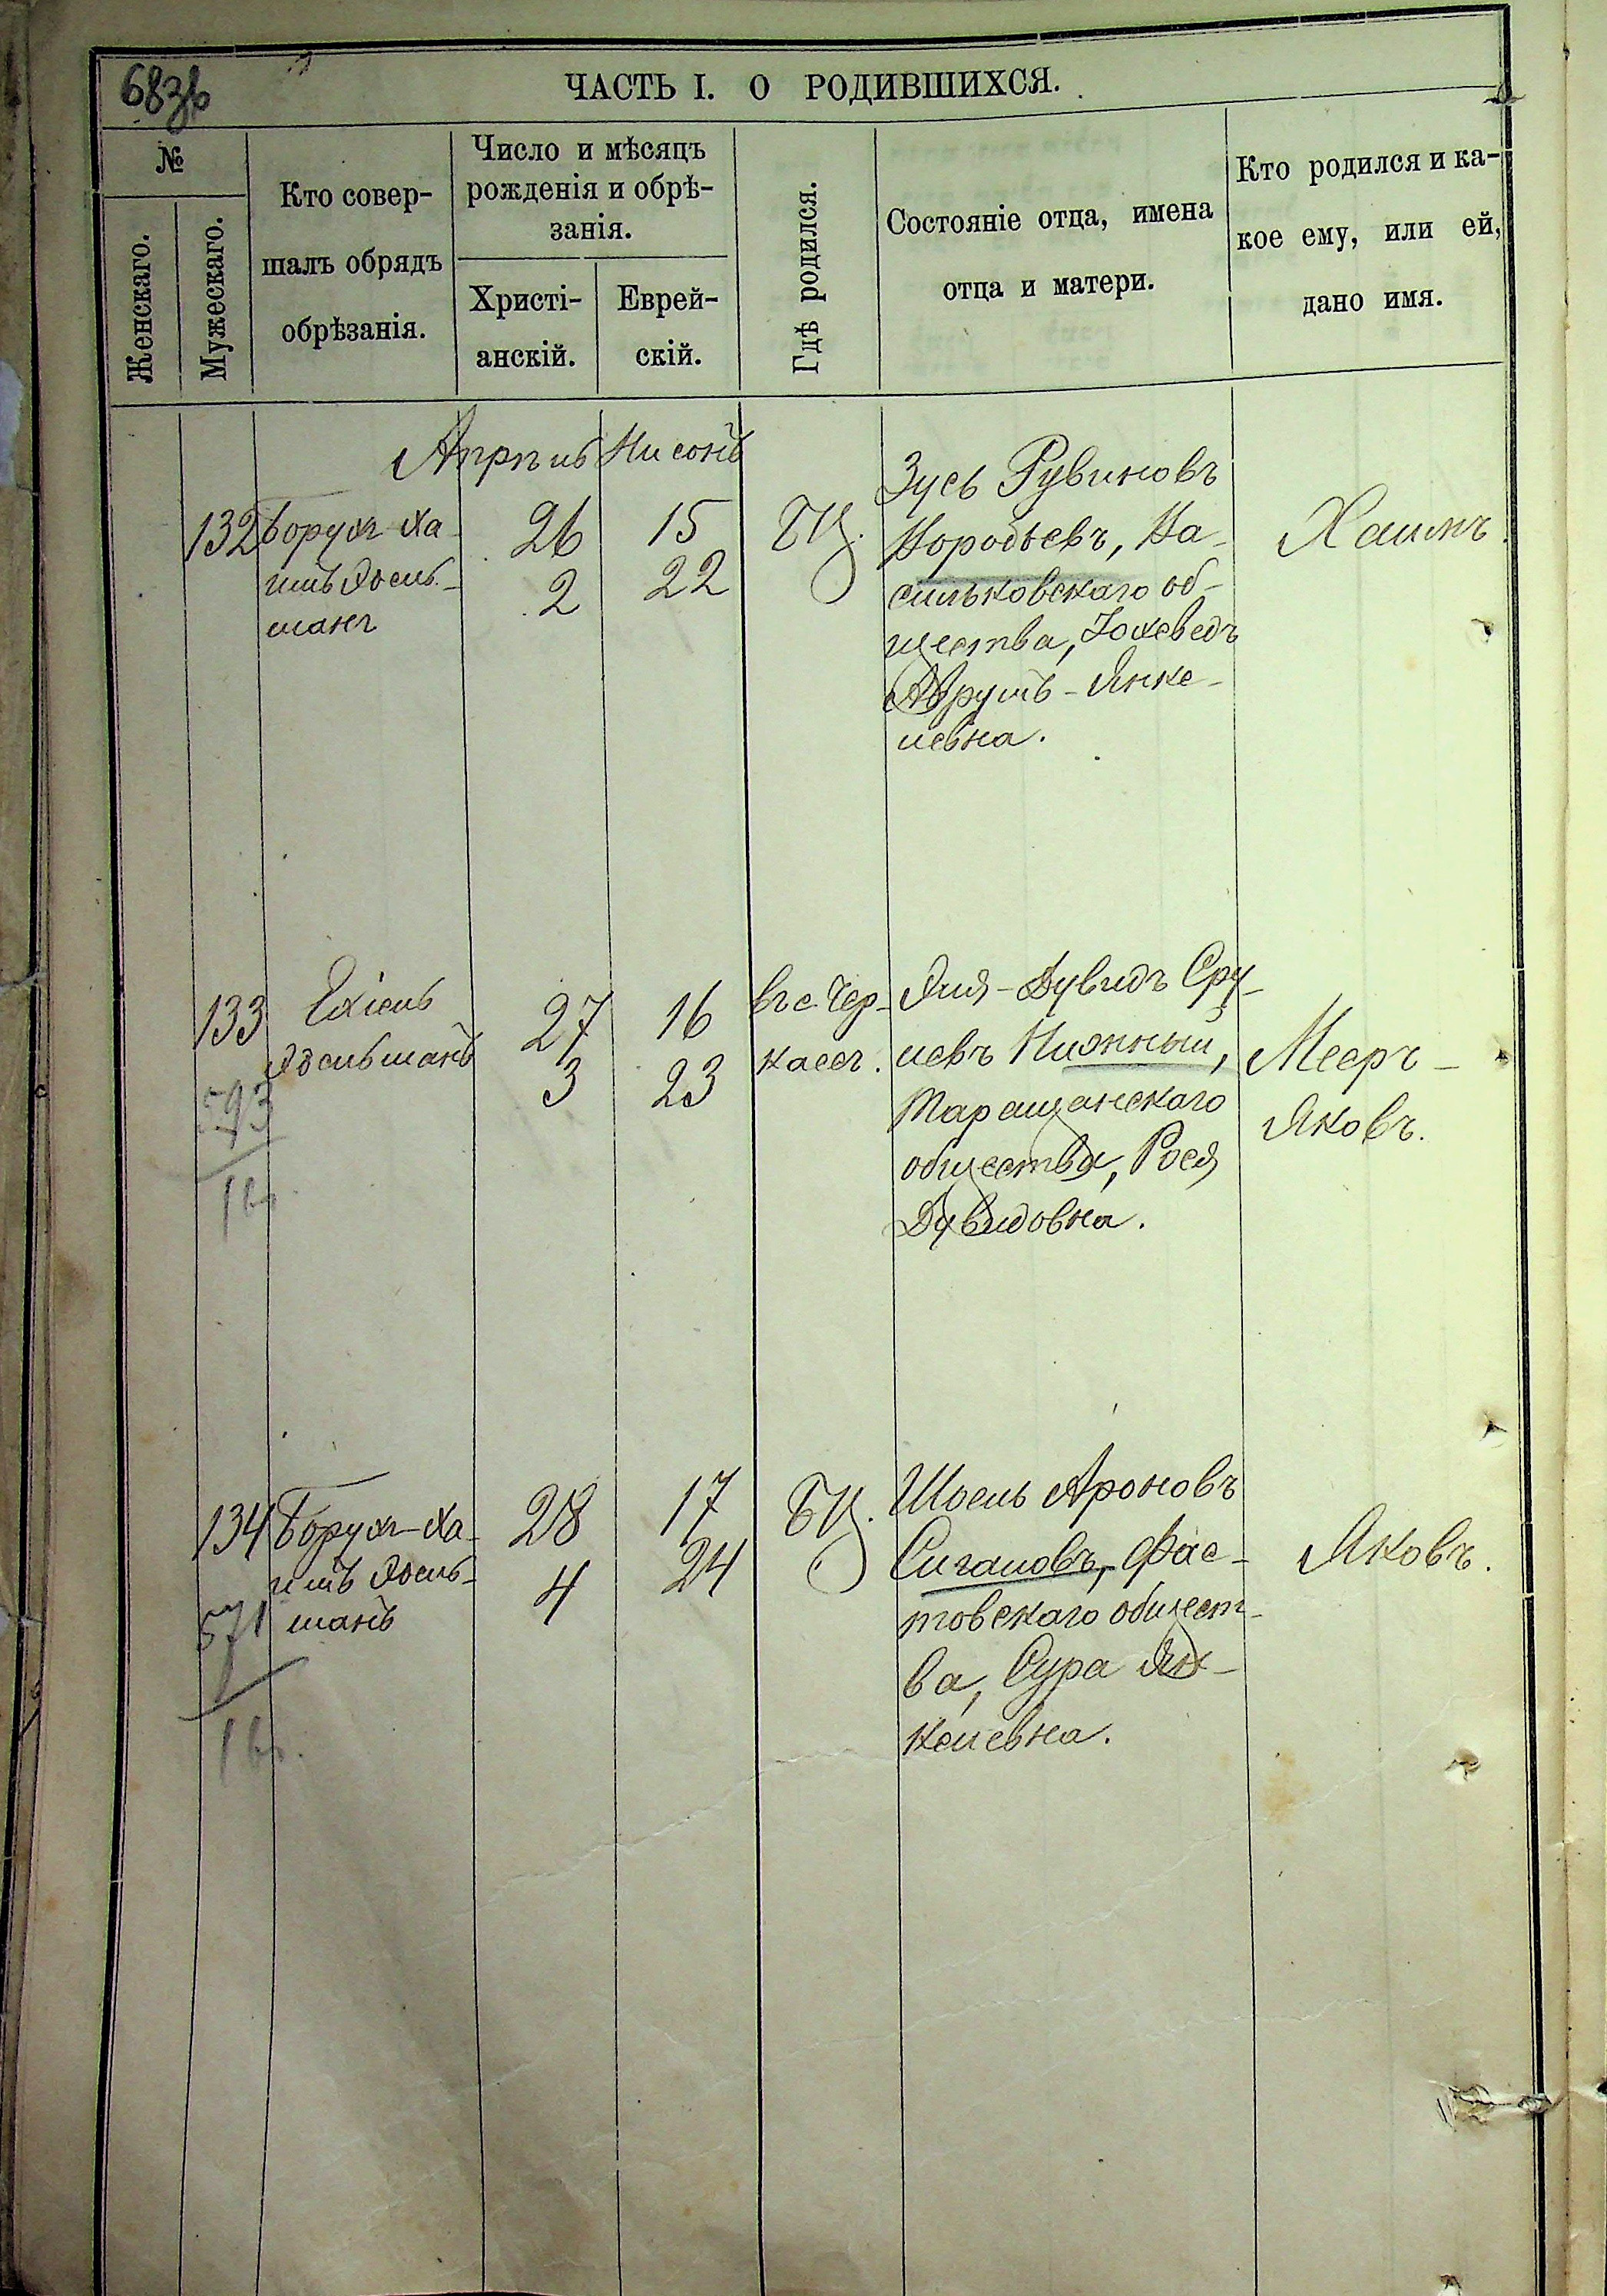 683б
ЧАСТЬ I. О РОДИВШИХСЯ.
№
Женскаго.
Мужескаго.
Кто совер-
шалъ обрядъ
обрѣзанія.
Число и мѣсяцъ
рожденія и обрѣ-
занія.
Христі-
анскій.
Еврей-
скій.
Гдѣ родился.
Состояніе отца, имена
отца и матери.
Кто родился и ка-
кое ему, или ей,
дано имя.
Апрѣль Нисонъ
132
Борухъ Ха-
имъ
26
2
15
22
БЦ.
Зусь Рувиновъ
Коробьевъ, Ва-
сильковскаго об-
щества, Іохеведъ
Аврумъ-Янке-
левна.
Хаимъ.
133
593
Ехіель
27
3
16
23
въ с. Чер-
касс.
Эля-Дувидъ Сру-
левъ
Таращанскаго
общества, Рося
Дувидовна.
Мееръ-
Яковъ.
134
571
Борухъ-Ха-
имъ
28
4
17
24
БЦ.
Шоель Ароновъ
Сигаловъ, Фас-
товскаго общест-
ва, Сура Ян-
келевна.
Яковъ.